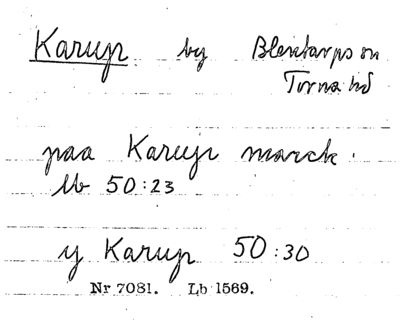 Karup by Blentarps sn
Torna hd
paa Karup marck.
Lb 50:23
y Karup 50:30
Nr 7081. Lb 1569.